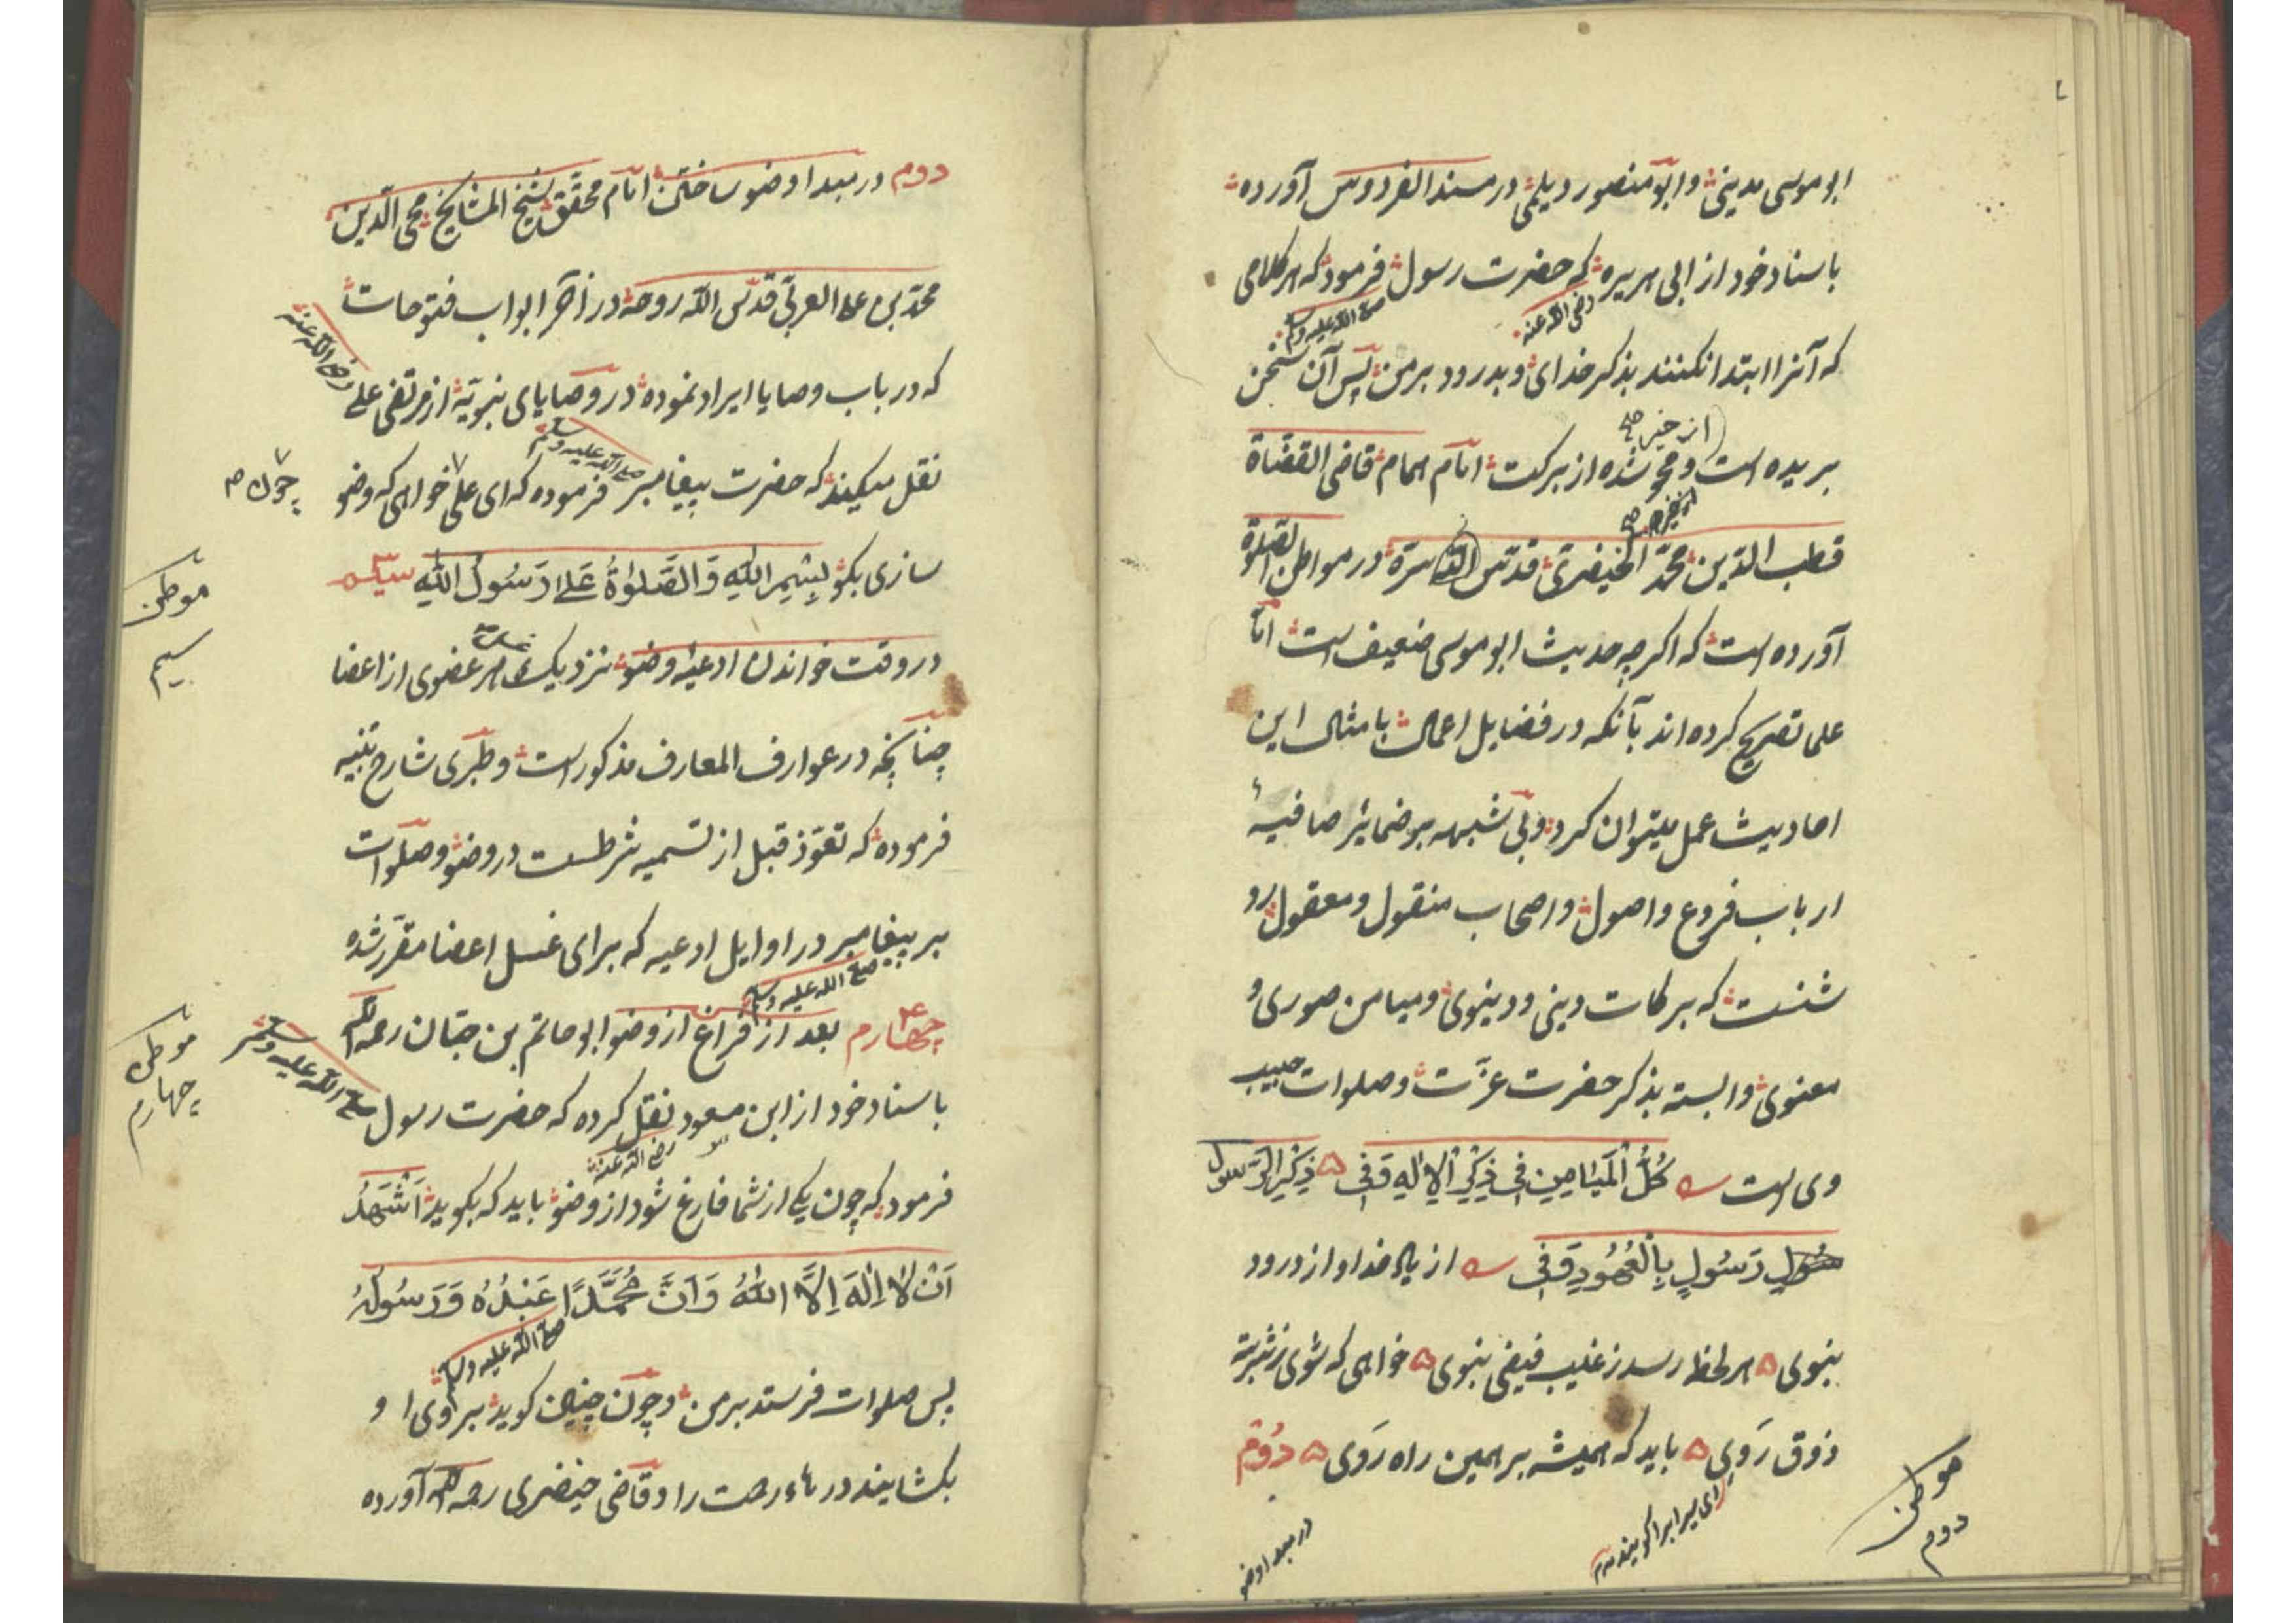 ابو موسی مدینی و ابو منصور دیلمی در مسند الفردوس آورده
باسناد خود از ابی هریره که حضرت رسول فرمود که هر کلامی
رضی الله عنه
صلی الله علیه وسلم
که آنرا ابتدا نکنند بذکر خدای و بدرود بر من پس آن سخن
از خیر صح
بریده است و محو شده از برکت امام همام قاضی القضاة
قطب الدین محمد الخیضری قدس الله سره در مواطن الصلوة
آورده است که اکرچه حدیث ابو موسی ضعیف است اما
علما تصریح کرده اند بآنکه در فضایل اعمال بامثال این
احادیث عمل میتوان کرد و بی شبهه بر ضمایر صافیهٔ
ارباب فروع و اصول و اصحاب منقول و معقول رو
شنست که برکات دینی و دینوی و میامن صوری و
معنوی وابسته بذکر حضرت عزت و صلوات حبیب
وی است کُلُّ الْمَیَامِینِ فِی ذِکْرِ الْاِلٰهِ وَفِی ذِکْرِ الرَّسُول
رَسُولٍ بِالْعُهُودِ وَفِی از یاد خدا و از درود
نبوی هر لحظه رسد ز غیب فیض نبوی خواهی که شوی ز شربت
ذوق رَوِی باید که همیشه بر همین راه رَوَی دُوُم
موطن
دوم
در مبدا وضو
دوم در مبدا وضو ساختن امام محقق شیخ المشایخ محی الدین
محمد بن علی العربی قدس الله روحه در آخر ابواب فتوحات
که در باب وصایا ایراد نموده در وصایای نبویه از مرتضی علی
رضی الله عنه
نقل میکند که حضرت پیغامبر فرموده که ای علی خواهی که وضو
صلی الله علیه وسلم
چون ص
سازی بکو بِسْمِ اللّٰهِ وَالصَّلٰوةُ عَلٰی رَسُولِ اللّٰهِ سیم
موطن
سیم
در وقت خواندن ادعیه وضو نزدیک هر عضوی از اعضا
چنانچه در عوارف المعارف مذکور است و طبری شارح تنبیه
فرموده که تعوذ قبل از تسمیه شرطست در وضو و صلوات
بر پیغامبر در اوایل ادعیه که برای غسل اعضا مقرر شده
صلی الله علیه وسلم
چهارم بعد از فراغ از وضو ابو حاتم بن حبان رحمه الله
موطن
چهارم
باسناد خود از ابن مسعود نقل کرده که حضرت رسول
صلی الله علیه وسلم
رضی الله عنه
فرمود که چون یکی از شما فارغ شود از وضو باید که بکوید اَشْهَدُ
اَنْ لَا اِلٰهَ اِلَّا اللّٰهُ وَاَنَّ مُحَمَّدًا عَبْدُهُ وَرَسُولُهُ
صلی الله علیه وسلم
پس صلوات فرستد بر من و چون چنین کوید بر وی ا و
بکشایند درهاء رحمت را و قاضی خیضری رحمه الله آورده